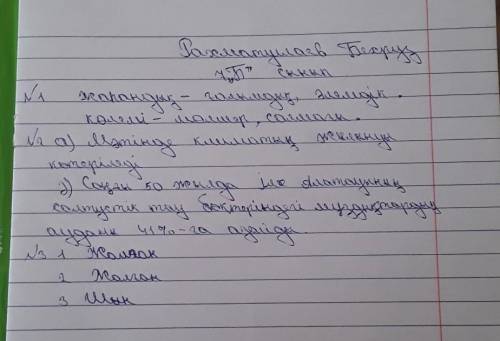 Рахматулаев Бехруз
7 "Б" сынып
№1 жарандық - ғаламдық, әлемдік.
көлемі - мөлшер, салмағы.
№2 а) Мәтінде климаттық жылыну
көтерілді
ә) Соңғы 50 жылда Іле Алатауының
солтүстік тау бөктеріндегі мұздықтардың
ауданы 41%-ға азайды.
№3 1 Жалған
2 Жалған
3 Шын